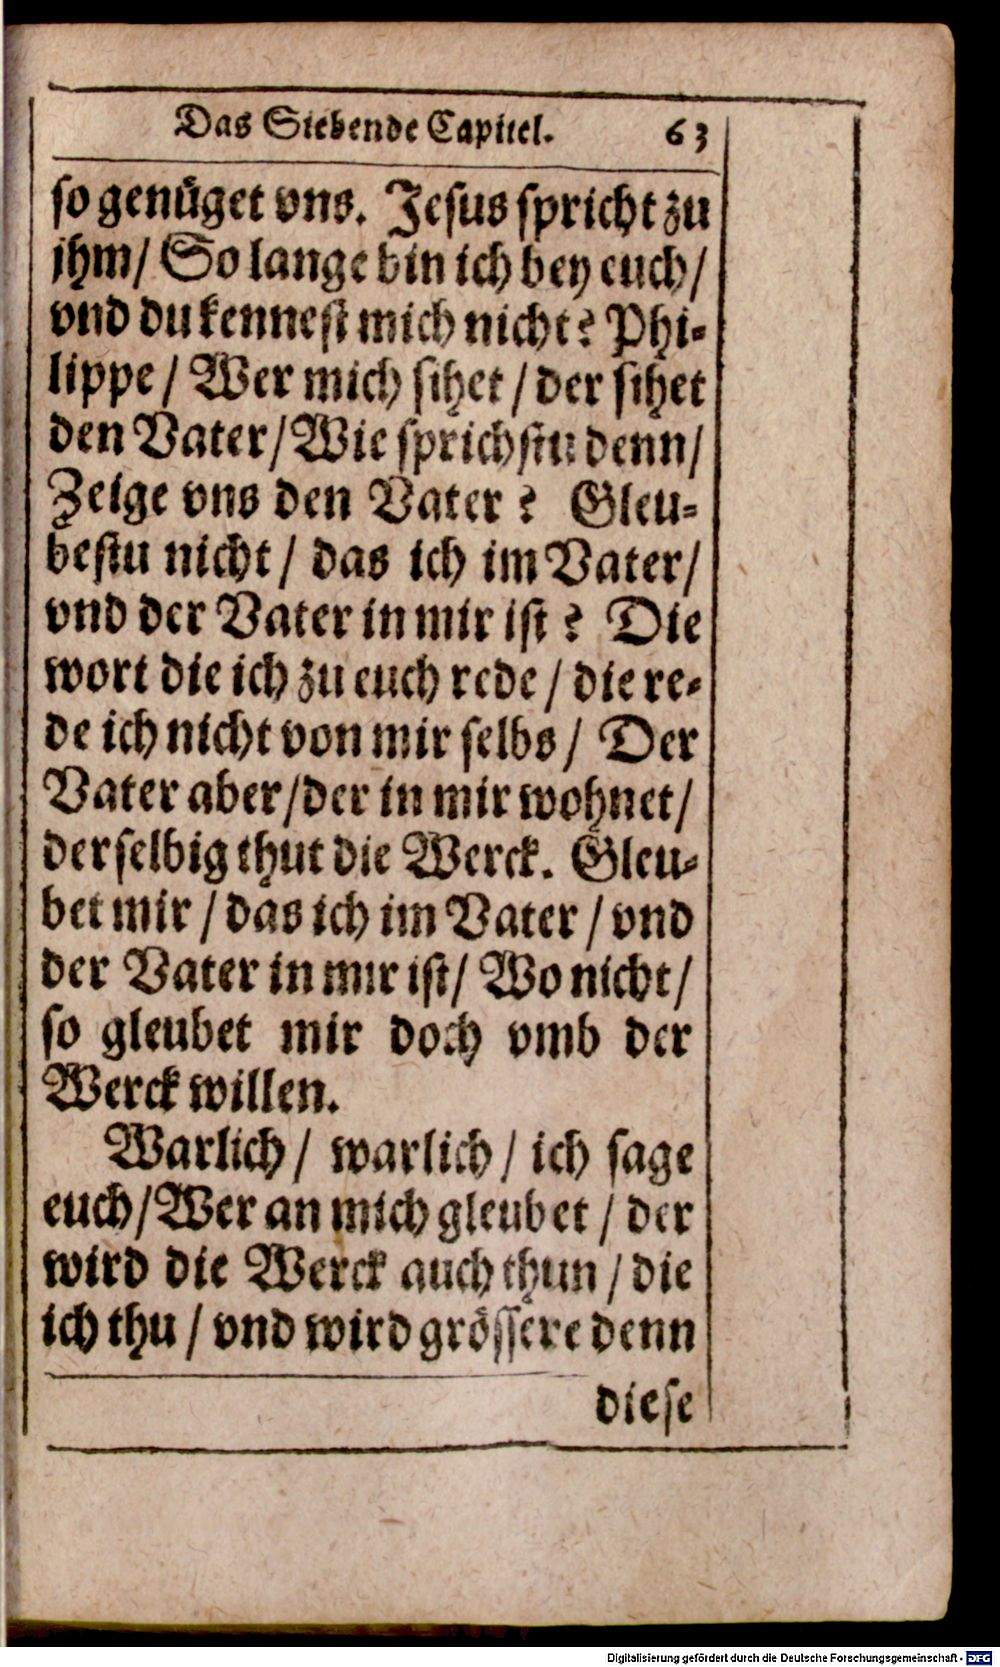 Das Siebende Capitel. 63
so genüget vns. Jesus spricht zu
jhm/ So lange bin ich bey euch/
vnd du kennest mich nicht? Phi-
lippe / Wer mich sihet / der sihet
den Vater/ Wie sprichstu denn/
Zeige vns den Vater? Gleu-
bestu nicht / das ich im Vater/
vnd der Vater in mir ist? Die
wort die ich zu euch rede / die re-
de ich nicht von mir selbs / Der
Vater aber/der in mir wohnet/
derselbig thut die Werck. Gleu-
bet mir / das ich im Vater / vnd
der Vater in mir ist/ Wo nicht/
so gleubet mir doch vmb der
Werck willen.
Warlich/ warlich/ ich sage
euch/Wer an mich gleubet / der
wird die Werck auch thun / die
ich thu / vnd wird grössere denn
diese
Digitalisierung gefördert durch die Deutsche Forschungsgemeinschaft - DFG